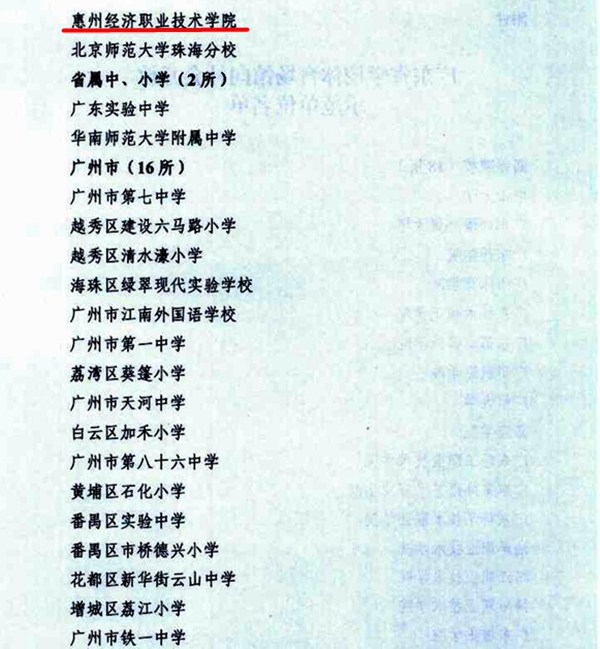 惠州经济职业技术学院
北京师范大学珠海分校
省属中、小学（2所）
广东实验中学
华南师范大学附属中学
广州市（16所）
广州市第七中学
越秀区建设六马路小学
越秀区清水濠小学
海珠区绿翠现代实验学校
广州市江南外国语学校
广州市第一中学
荔湾区葵蓬小学
广州市天河中学
白云区加禾小学
广州市第八十六中学
黄埔区石化小学
番禺区实验中学
番禺区市桥德兴小学
花都区新华街云山中学
增城区荔江小学
广州市铁一中学